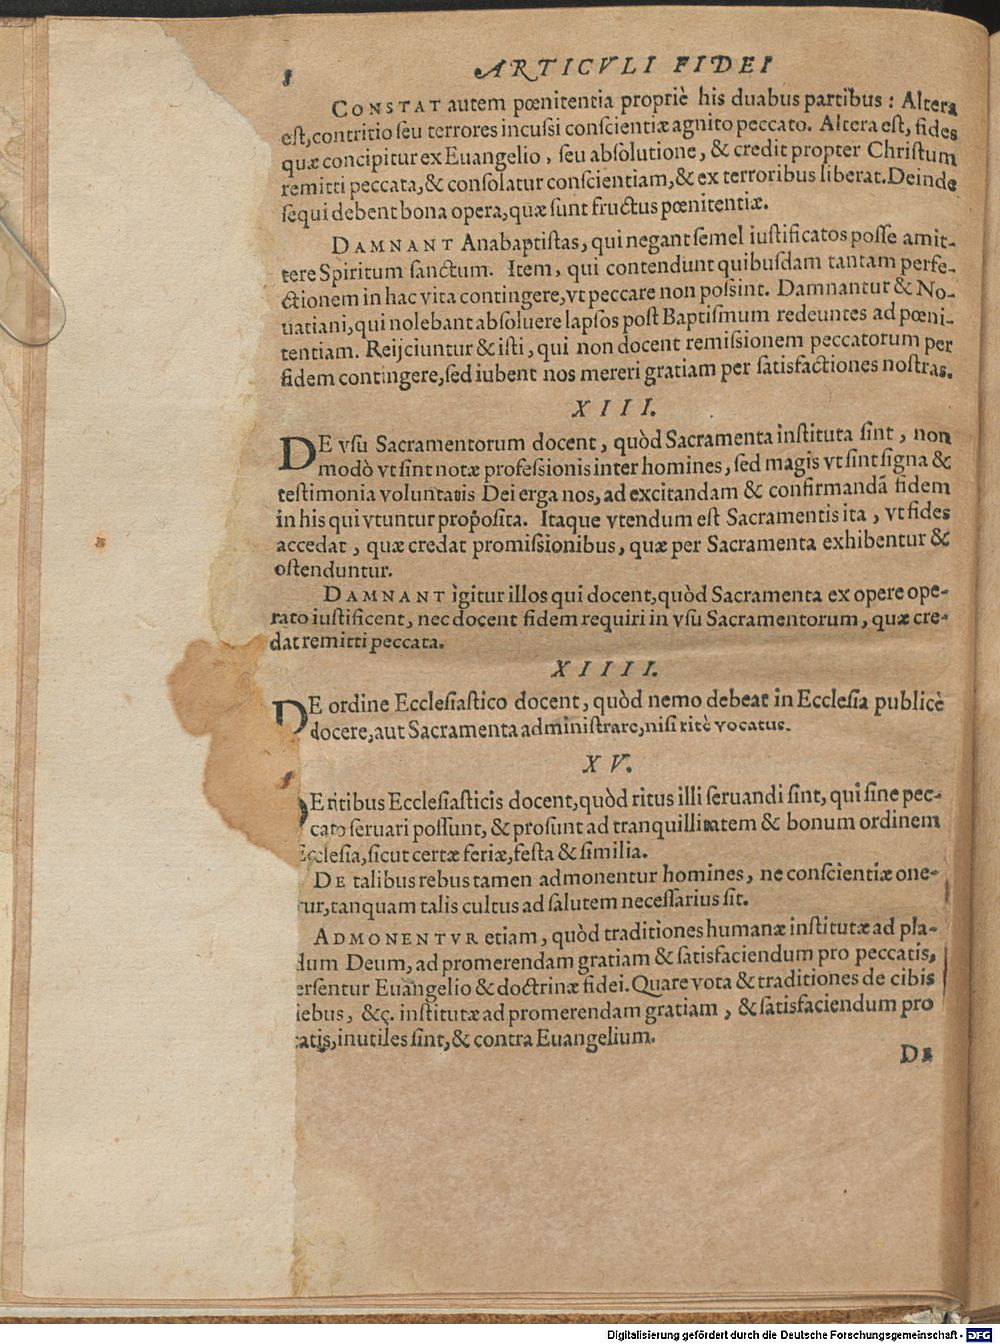 8 ARTICVLI FIDEI
CONSTAT autem pœnitentia propriè his duabus partibus : Altera
eſt, contritio ſeu terrores incuſsi conſcientiæ agnito peccato. Altera eſt, fides
quæ concipitur ex Euangelio, ſeu abſolutione, & credit propter Chriſtum
remitti peccata, & conſolatur conſcientiam, & ex terroribus liberat. Deinde
ſequi debent bona opera, quæ ſunt fructus pœnitentiæ.
DAMNANT Anabaptiſtas, qui negant ſemel iuſtificatos poſſe amit-
tere Spiritum ſanctum. Item, qui contendunt quibuſdam tantam perfe-
ctionem in hac vita contingere, vt peccare non poſsint. Damnantur & No-
uatiani, qui nolebant abſoluere lapſos poſt Baptiſmum redeuntes ad pœni-
tentiam. Reijciuntur & iſti, qui non docent remiſsionem peccatorum per
fidem contingere, ſed iubent nos mereri gratiam per ſatisfactiones noſtras.
XIII.
DE vſu Sacramentorum docent, quòd Sacramenta inſtituta ſint, non
modò vt ſint notæ profeſsionis inter homines, ſed magis vt ſint ſigna &
teſtimonia voluntatis Dei erga nos, ad excitandam & confirmandã fidem
in his qui vtuntur propoſita. Itaque vtendum eſt Sacramentis ita, vt fides
accedat, quæ credat promiſsionibus, quæ per Sacramenta exhibentur &
oſtenduntur.
DAMNANT igitur illos qui docent, quòd Sacramenta ex opere ope-
rato iuſtificent, nec docent fidem requiri in vſu Sacramentorum, quæ cre-
dat remitti peccata.
XIIII.
DE ordine Eccleſiaſtico docent, quòd nemo debeat in Eccleſia publicè
docere, aut Sacramenta adminiſtrare, niſi ritè vocatus.
XV.
DE ritibus Eccleſiaſticis docent, quòd ritus illi ſeruandi ſint, qui ſine pec-
cato ſeruari poſſunt, & proſunt ad tranquillitatem & bonum ordinem
Eccleſia, ſicut certæ feriæ, feſta & ſimilia.
DE talibus rebus tamen admonentur homines, ne conſcientiæ one-
tur, tanquam talis cultus ad ſalutem neceſſarius ſit.
ADMONENTVR etiam, quòd traditiones humanæ inſtitutæ ad pla-
dum Deum, ad promerendam gratiam & ſatisfaciendum pro peccatis,
erſentur Euangelio & doctrinæ fidei. Quare vota & traditiones de cibis
iebus, &c. inſtitutæ ad promerendam gratiam, & ſatisfaciendum pro
catis, inutiles ſint, & contra Euangelium.
DE
Digitalisierung gefördert durch die Deutsche Forschungsgemeinschaft - DFG